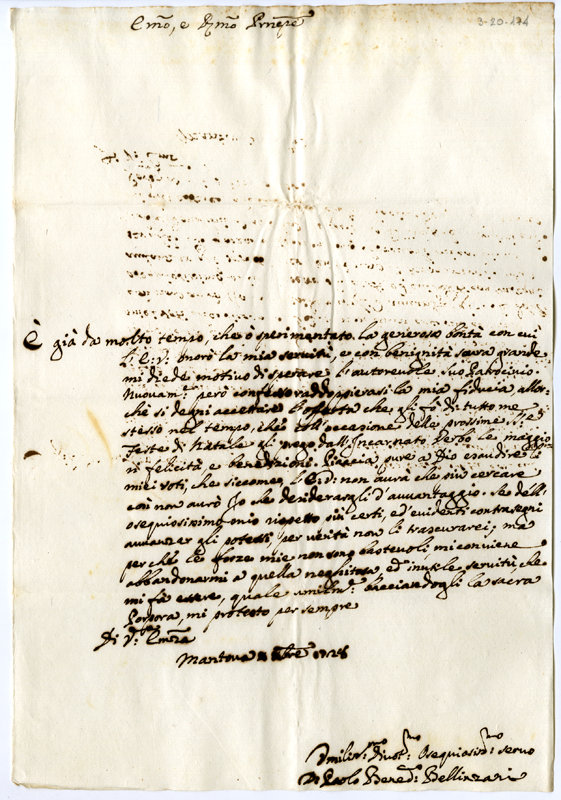 3-20-174
Em̃o, e Rm̃o Prñpe
È già da molto tempo, che ò sperimentato la generosa bontà con cui
l'E.V. onorò la mia servitù, e con benignità sovra grande
mi diede motivo di sperare l'autorevole suo Patrocinio.
Nuovam:te però confesso raddoppierasi la mia fiducia, allor-
che si degni accettare l'offerta che gli fò di tutto me
stesso nel tempo, che coll'occasione delle prossime S:te
Feste di Natale gli prego dall'Incarnato Verbo le maggio-
ri felicità e benedizioni. Piaccia pure a Dio esaudire li
miei voti, che siccome l'E.V. non aurà che più cercare
così non aurò Io che desiderargli d'auvantaggio. Se dell'
osequiosissimo mio rispetto più certi, ed evidenti contrasegni
auvanzar gli potessi, per verità non li trascurarei; mà
perchè le forze mie non sono bastevoli, mi conviene
abbandonarmi a quella neghitosa, ed inutile servitù, che
mi fà essere, quale umilm:te bacciandogli la sacra
Porpora, mi protesto per sempre
Di V:ra Em̃za
Mantova
Umiliss:mo Divot:mo Osequiosiss:mo servo
D. Paolo Bened:o Bellinzani